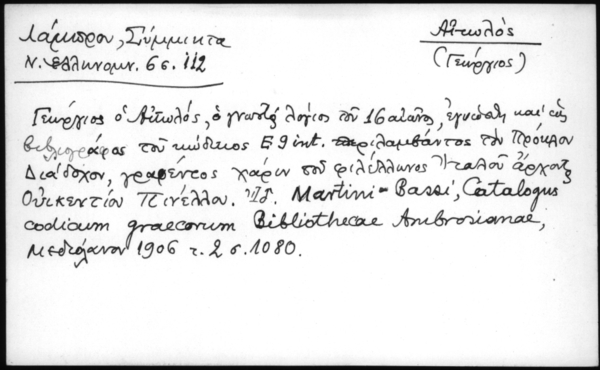 Λάμπρου, Σύμμικτα
Ν. Ἑλληνομν. 6 σ. 112
Αἰτωλός
(Γεώργιος)
Γεώργιος ὁ Αἰτωλός, ὁ γνωστὸς λόγιος τοῦ 16 αἰῶνος, ἐγνώσθη καὶ ὡς
βιβλιογράφος τοῦ κώδικος E 9 int. περιλαμβάντος τὸν Πρόκλον
Διάδοχον, γραφέντος χάριν τοῦ φιλέλληνος Ἰταλοῦ ἄρχοντος
Οὐικεντίου Πινέλλου. Martini-Bassi, Catalogus
codicum graecorum Bibliothecae Ambrosianae,
Μεδιόλανον 1906 τ. 2 σ. 1080.